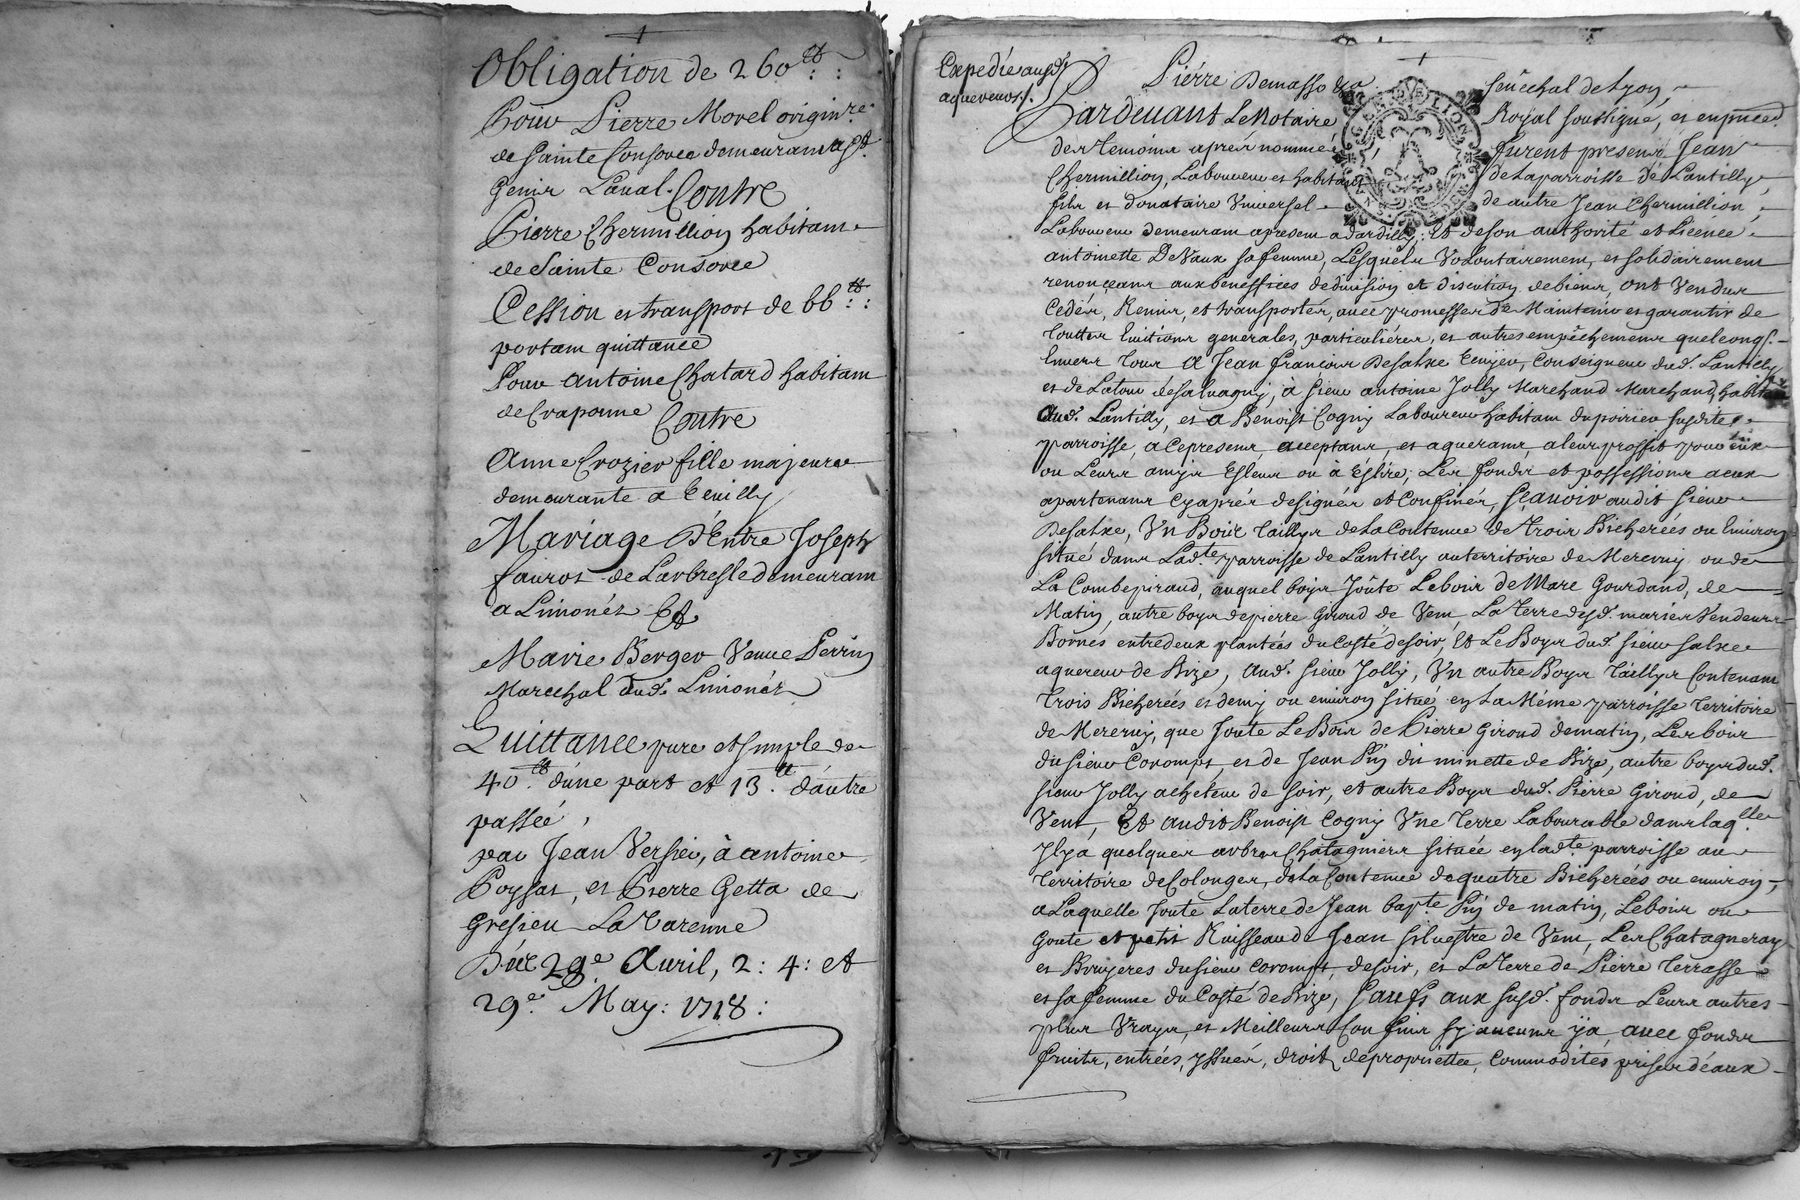 Obligation de 260 ₶ : :
Pour Pierre Morel origin.re
de Sainte Consorce demeurant a St
Genis Laual. Contre
Pierre Chermillion habitant
de Sainte Consorce
Cession et transport de 66 ₶ : :
portant quittance
Pour antoine Chatard habitant
de Craponne Contre
Anne Crozier fille majeure
demeurante a
Mariage D'Entre Joseph
fauros de Larbresle demeurant
a Limonés Et
Marie Berger Veuue Perrin
Marechal dud. Limonés
Quittance pure et simple de
40 ₶ d'une part et 13 ₶ d'autre
passée,
par Jean Versier, à antoine
Poysat, et Pierre Getta de
Gresieu La Varenne
Du 29e Auril, 2 : 4 : et
29e May : 1718 :
Expedié ausd.
aquereurs ./.
Pierre Demasso senechal de Lyon,
Pardeuant Le Notaire Royal soussigné, et en pnce
des temoins aprés nommés furent presens Jean
Chermillion, Laboureur et habitant de La parroisse de Lantilly,
fils et donataire Vniversel de autre Jean Chermillion,
Laboureur demeurant apresent a dardilly ; Et de son authorité et Licence
antoinette DeVaux sa femme, Lesquels Volontairement, et solidairement
renonçeans aux benefices de diuision et discution de biens, ont Vendus
Cedés, Remis, et transportés, auec promesses de Maintenir et garantir de
touttes Euitions generales, particuliéres, et autres empêchemens quelconq.
Enuers tous A Jean françois DeSalxe Ecuyer, Conseigneur dud. Lantilly
et de Latour deSaluagny, à sieur antoine Jolly Marchand Marchand habitant
Aud. Lantilly, et a Benoist Cogny Laboureur habitant du poirier susdite
parroisse, a Cepresens, acceptans, et aquerans, a leur proffit pour eux
ou Leurs amys Esleus ou à Eslire ; Les fonds et possessions a eux
apartenans Cyaprés designés et Confinés, sçauoir audit sieur
DeSalxe, Vn Bois taillys de La Contenue de trois Bicherées ou Enuiron
situé dans Lad.te parroisse de Lantilly au territoire de Mereruy ou de
La Combe giraud, auquel boys Joute Le bois de Marc Gourdand, de
Matin, autre boys de pierre Giroud de Vent, La terre desd. mariés Vendeurs
Bornes entre deux plantées du Costé de soir, Et Le Boys dud. sieur Salxe
aquereur de Bize, Aud. sieur Jolly, Vn autre Boys taillys Contenant
trois Bicherées et demy ou enuiron situé en La Méme parroisse territoire
de Mereruy, que Joute Le Bois de Pierre Giroud de matin, Les bois
du sieur Coromps, et de Jean Pin du minette de Bize, autre boys dud.
sieur Jolly acheteur de soir, et autre Boys dud. Pierre Giroud, de
Vent, Et audit Benoist Cogny Vne terre Labourable dans laq.lle
Il y a quelques arbres Chatagniers située en lad.te parroisse au
territoire de Colonges, de La Contenue de quatre Bicherées ou enuiron,
a Laquelle Joute La terre de Jean bap.te Pin de matin, Le bois ou
Goute et petit Ruisseau de Jean siluestre de Vent, Les Chatagneray
et Bruyeres du sieur Coromps, de soir, et La terre de Pierre terrasse
et sa femme du Costé de Bize, saufs aux susd. fonds Leurs autres
plus Vrays, et Meilleurs Confins sy aucuns y a, auec fonds
fruits, entrées, yssues, droits de propriettée, Commodités prises d'eaux